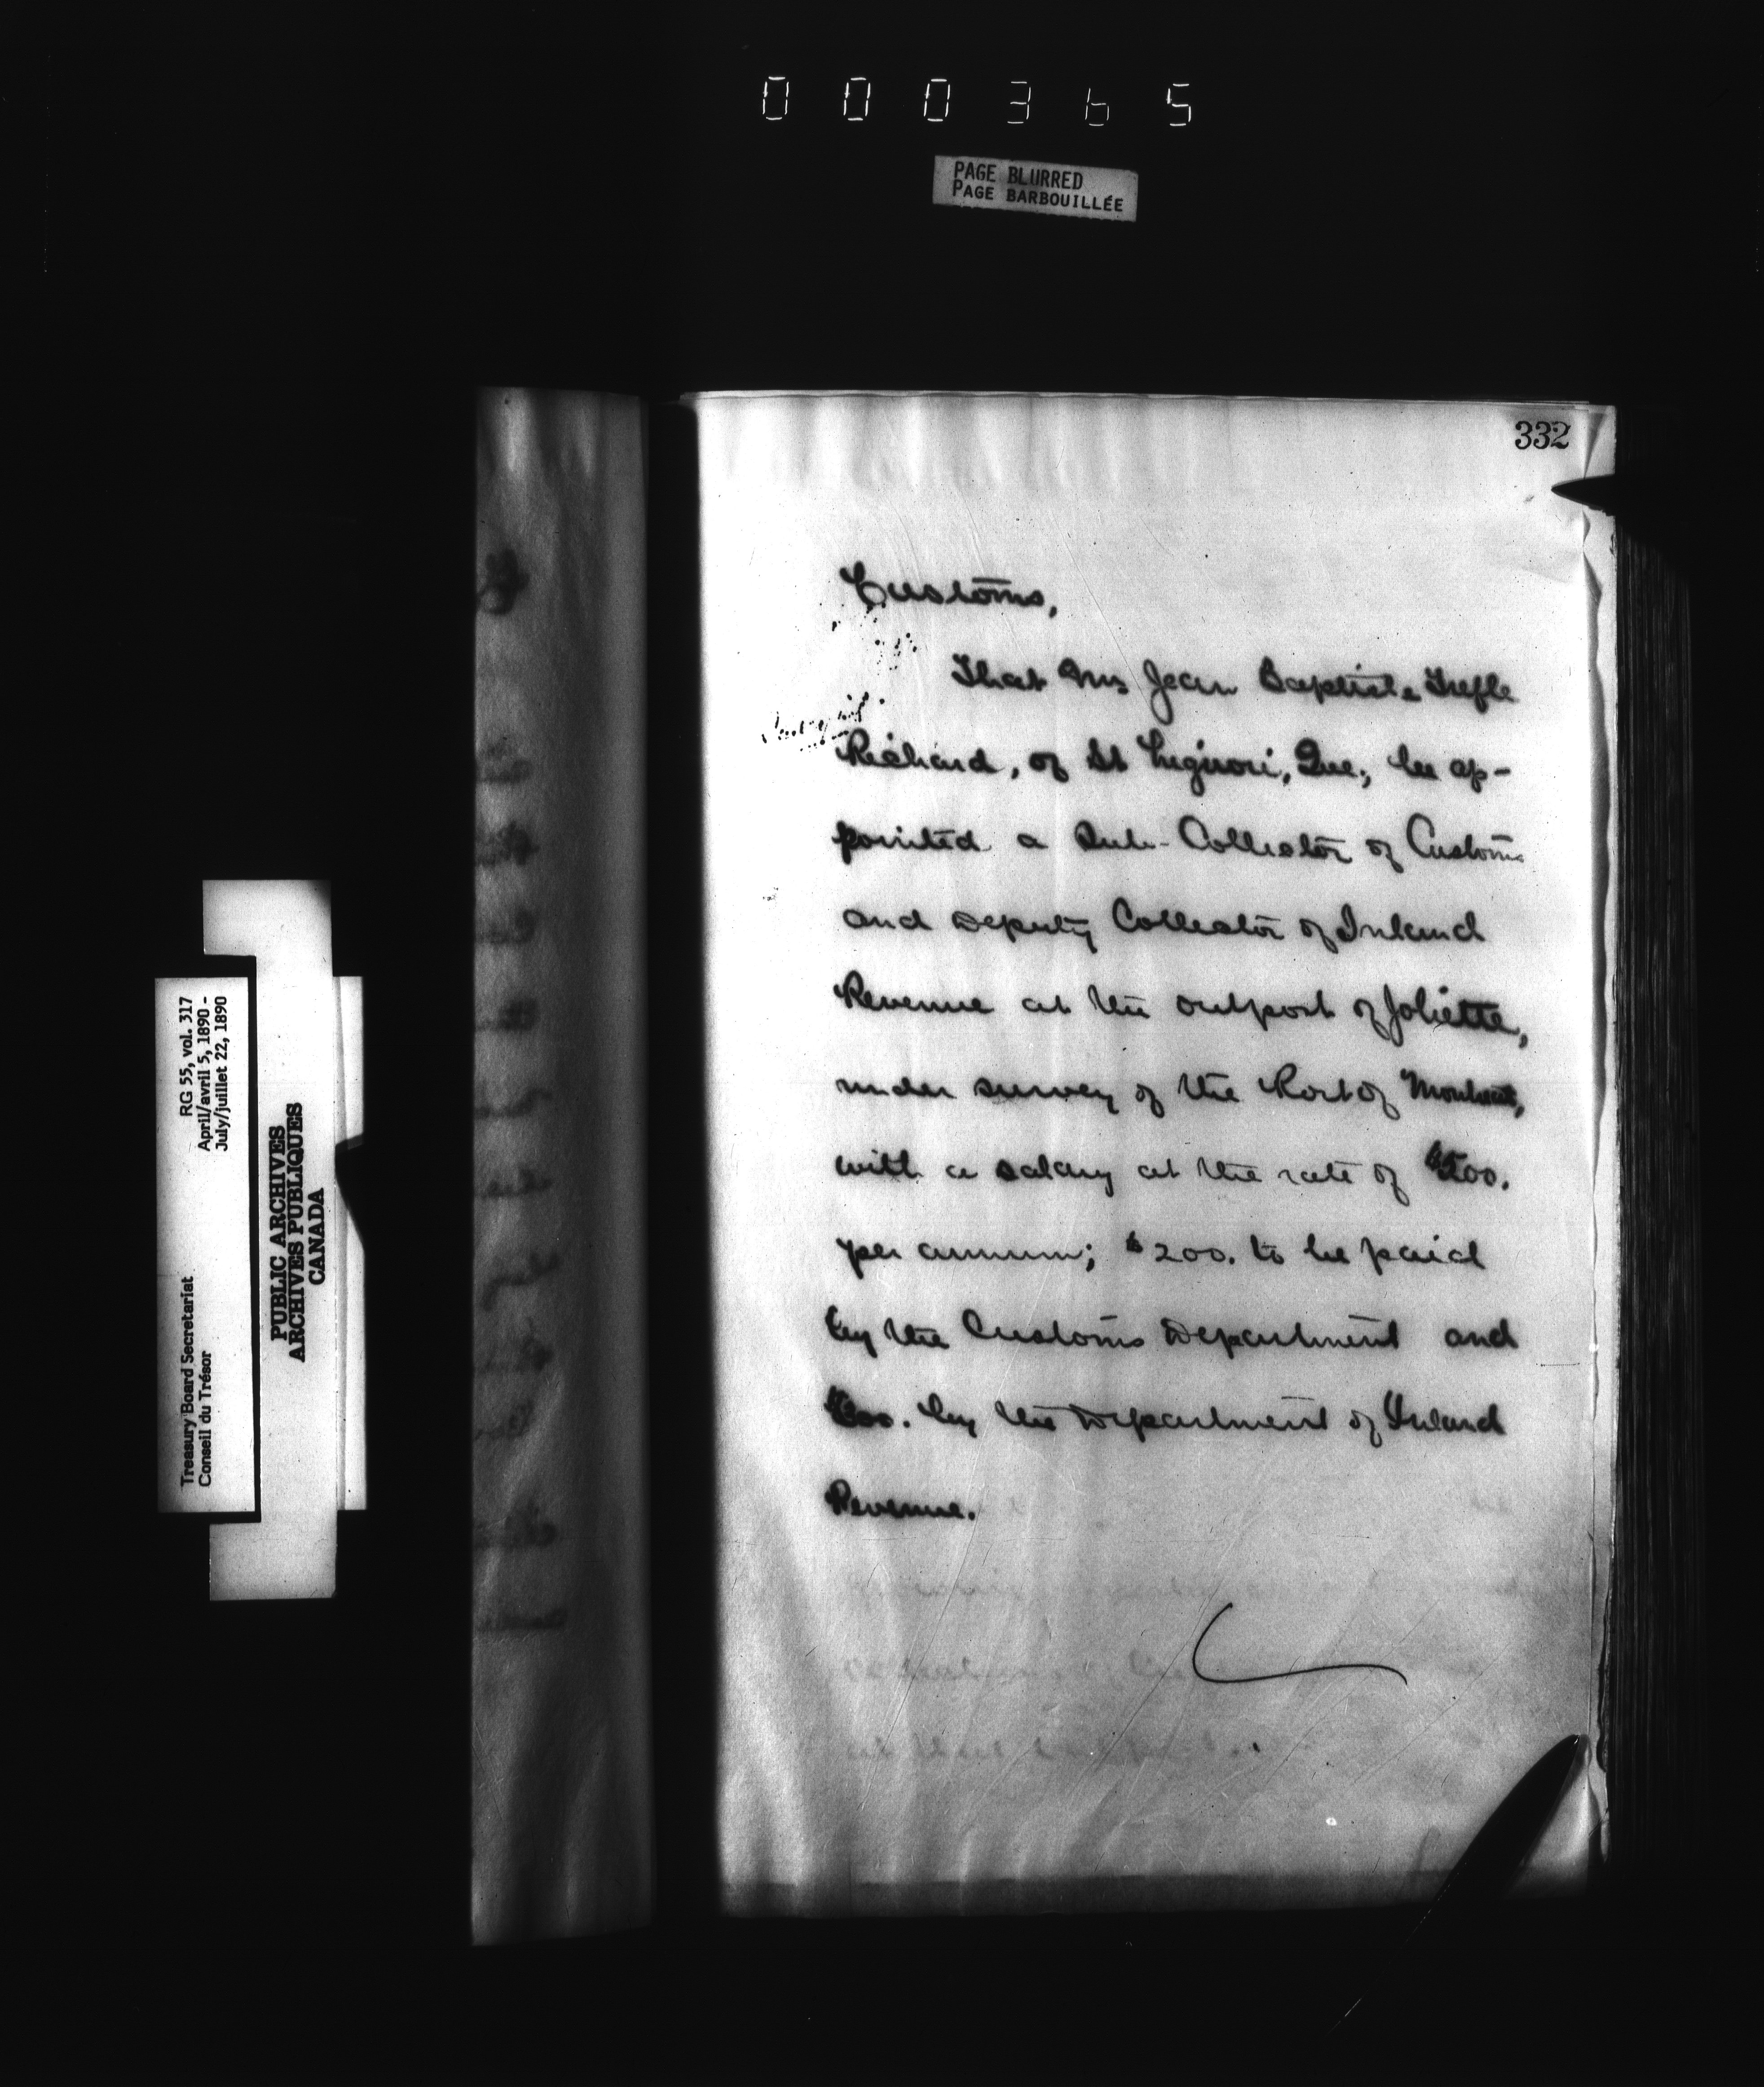 000365
PAGE BLURRED
PAGE BARBOUILLÉE
332
Customs,
That Mr Jean Baptiste Trefle
Richard, of St Liguori, Que., be ap-
pointed a Sub-Collector of Customs
and Deputy Collector of Inland
Revenue at the outport of Joliette,
under survey of the Port of Montreal,
with a salary at the rate of $500.
per annum; $200. to be paid
by the Customs Department and
$300. by the Department of Inland
Revenue.
Treasury Board Secretariat RG 55, vol. 317
Conseil du Trésor April/avril 5, 1890 -
July/juillet 22, 1890
PUBLIC ARCHIVES
ARCHIVES PUBLIQUES
CANADA